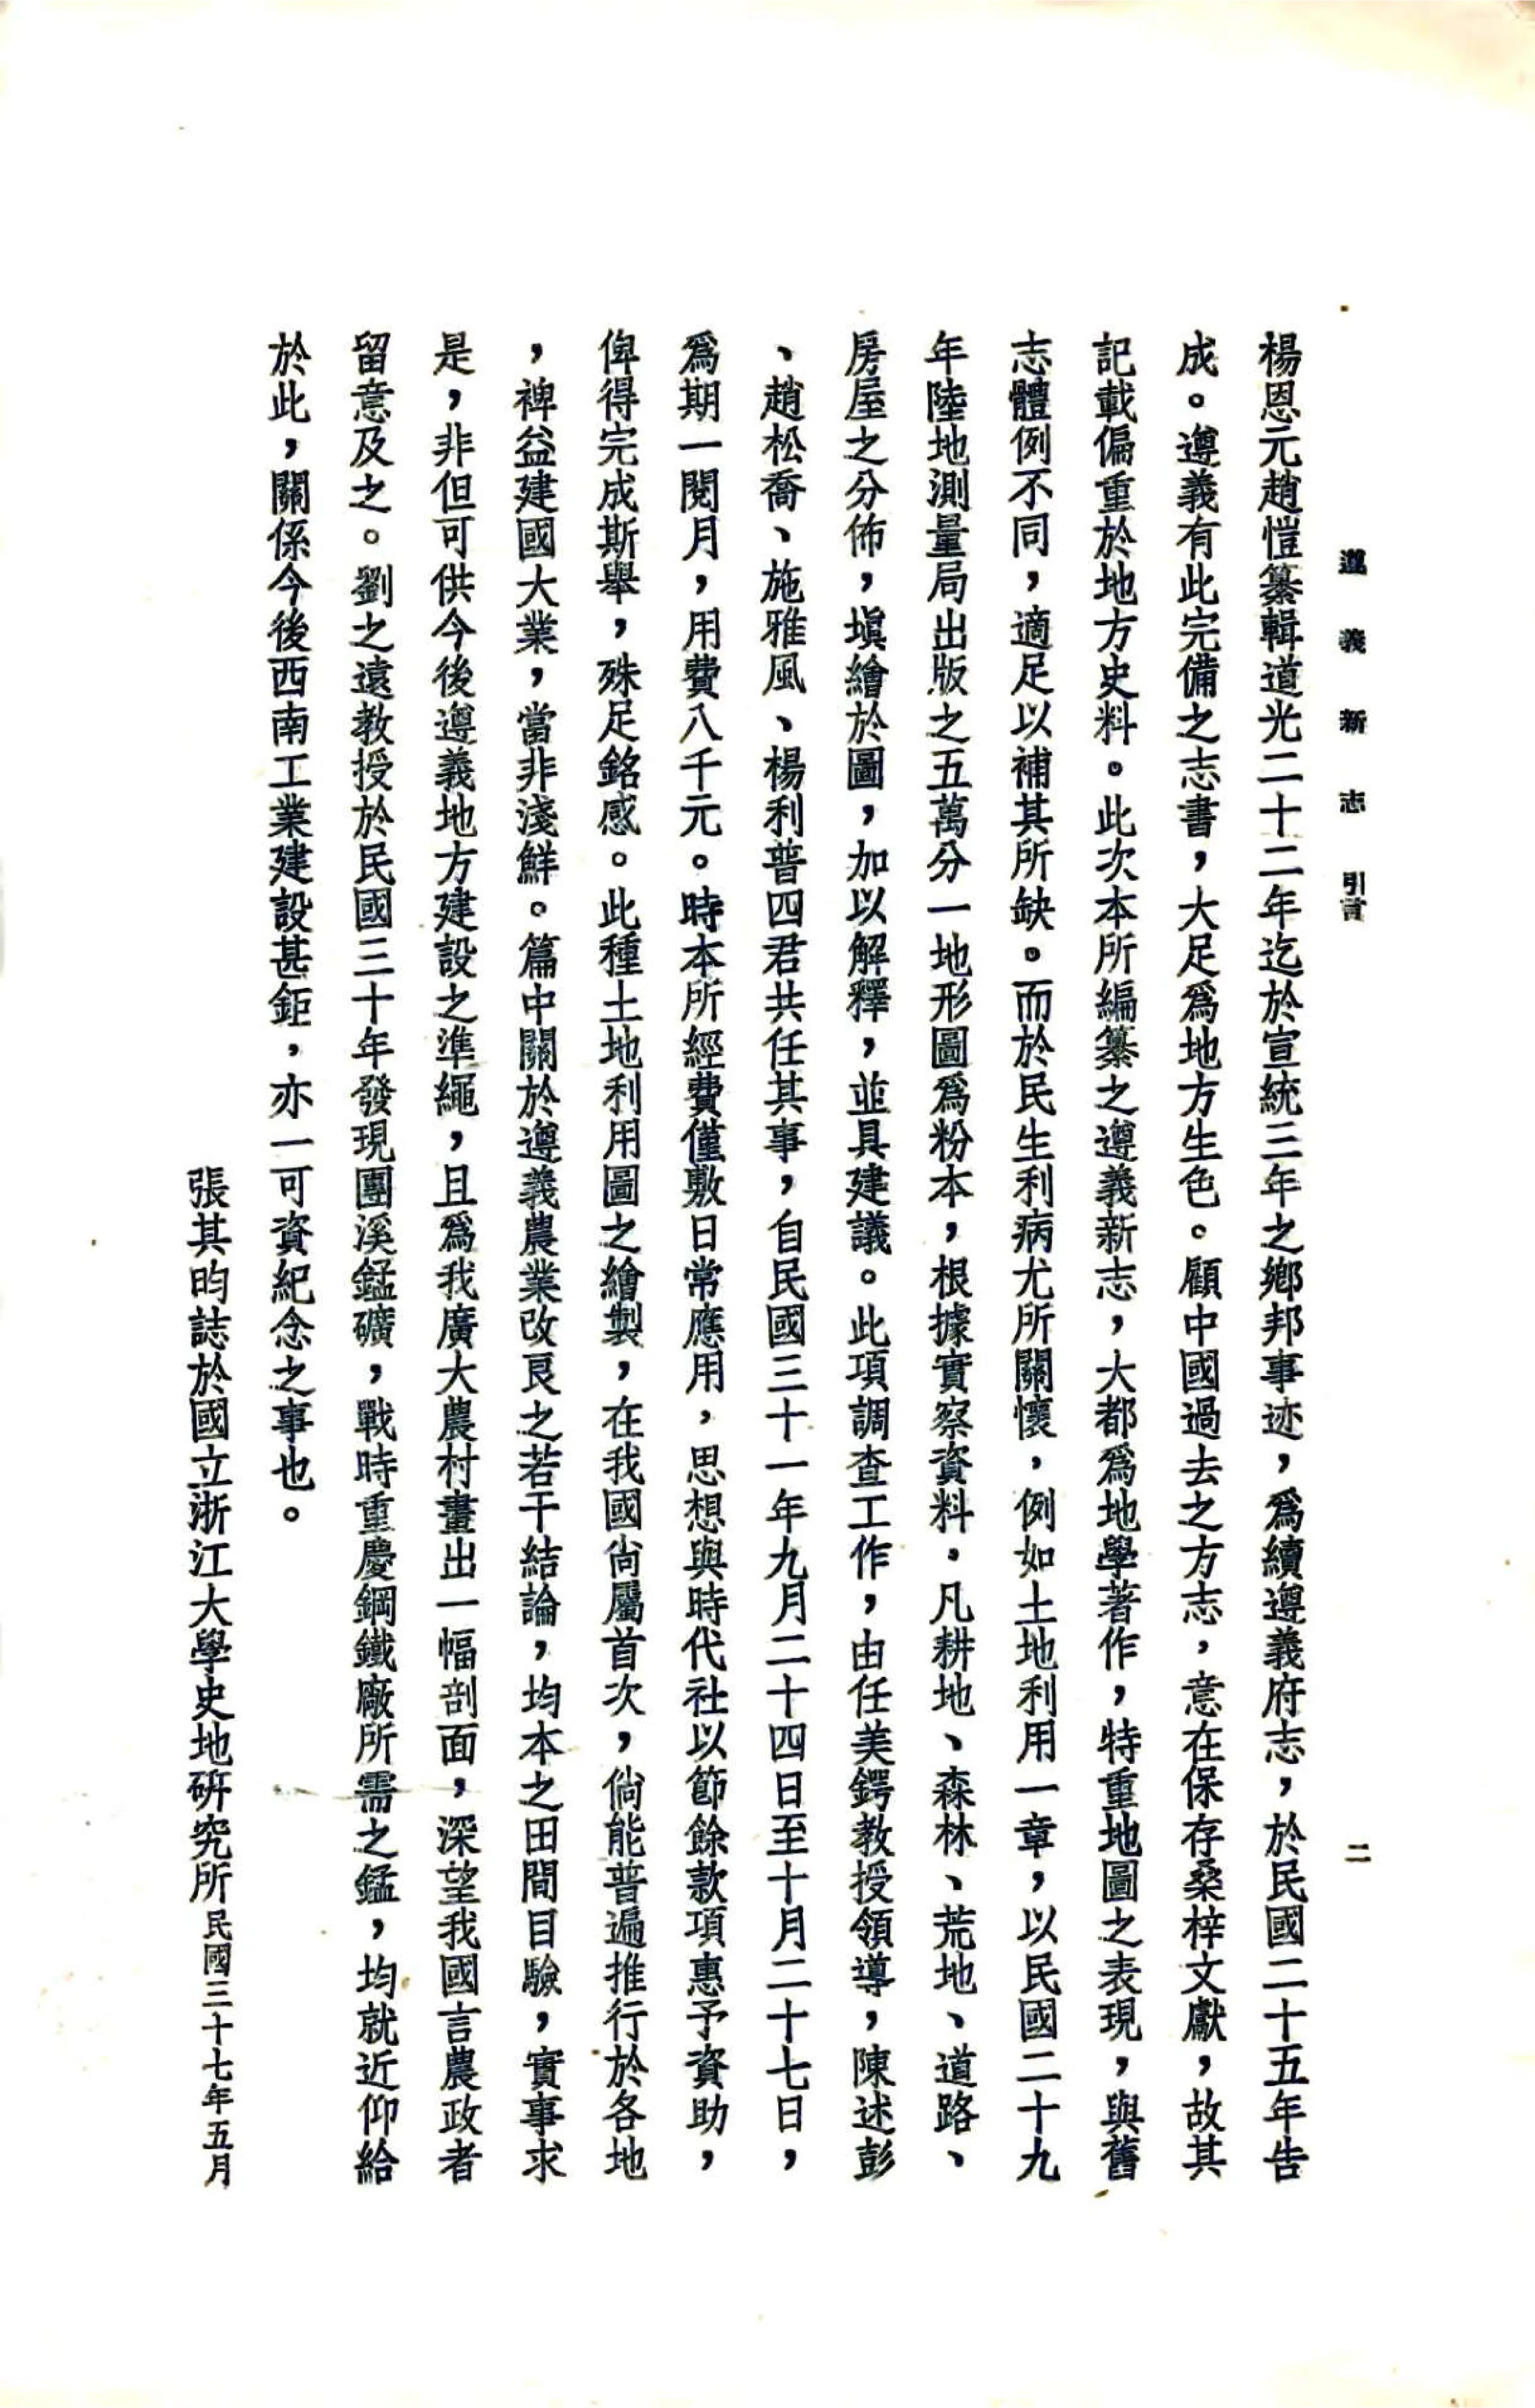 遵義新志 引言
二
楊恩元趙愷纂輯道光二十二年迄於宣統三年之鄉邦事迹，爲續遵義府志，於民國二十五年告
成。遵義有此完備之志書，大足爲地方生色。顧中國過去之方志，意在保存桑梓文獻，故其
記載偏重於地方史料。此次本所編纂之遵義新志，大都爲地學著作，特重地圖之表現，與舊
志體例不同，適足以補其所缺。而於民生利病尤所關懷，例如土地利用一章，以民國二十九
年陸地測量局出版之五萬分一地形圖爲粉本，根據實察資料，凡耕地、森林、荒地、道路、
房屋之分佈，塡繪於圖，加以解釋，並具建議。此項調查工作，由任美鍔教授領導，陳述彭
、趙松喬、施雅風、楊利普四君共任其事，自民國三十一年九月二十四日至十月二十七日，
爲期一閱月，用費八千元。時本所經費僅敷日常應用，思想與時代社以節餘款項惠予資助，
俾得完成斯舉，殊足銘感。此種土地利用圖之繪製，在我國尙屬首次，倘能普遍推行於各地
，裨益建國大業，當非淺鮮。篇中關於遵義農業改良之若干結論，均本之田間目驗，實事求
是，非但可供今後遵義地方建設之準繩，且爲我廣大農村畫出一幅剖面，深望我國言農政者
留意及之。劉之遠教授於民國三十年發現團溪錳礦，戰時重慶鋼鐵廠所需之錳，均就近仰給
於此，關係今後西南工業建設甚鉅，亦一可資紀念之事也。
張其昀誌於國立浙江大學史地研究所民國三十七年五月